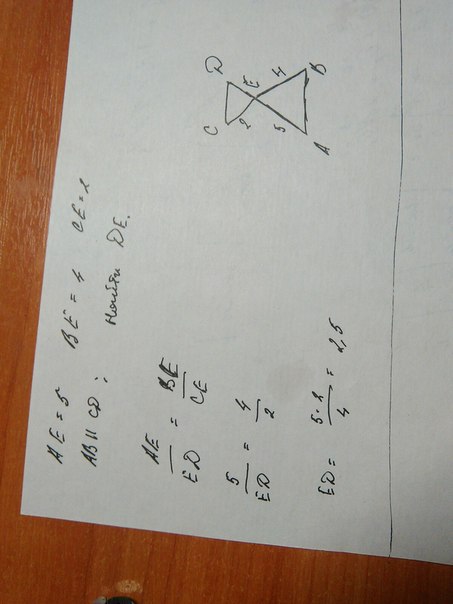 AE = 5 BE = 4 CE = 2
AB || CD; найти DE.
AE/ED = BE/CE
5/ED = 4/2
ED = 5·2/4 = 2,5
D
E
4
B
C
2
5
A